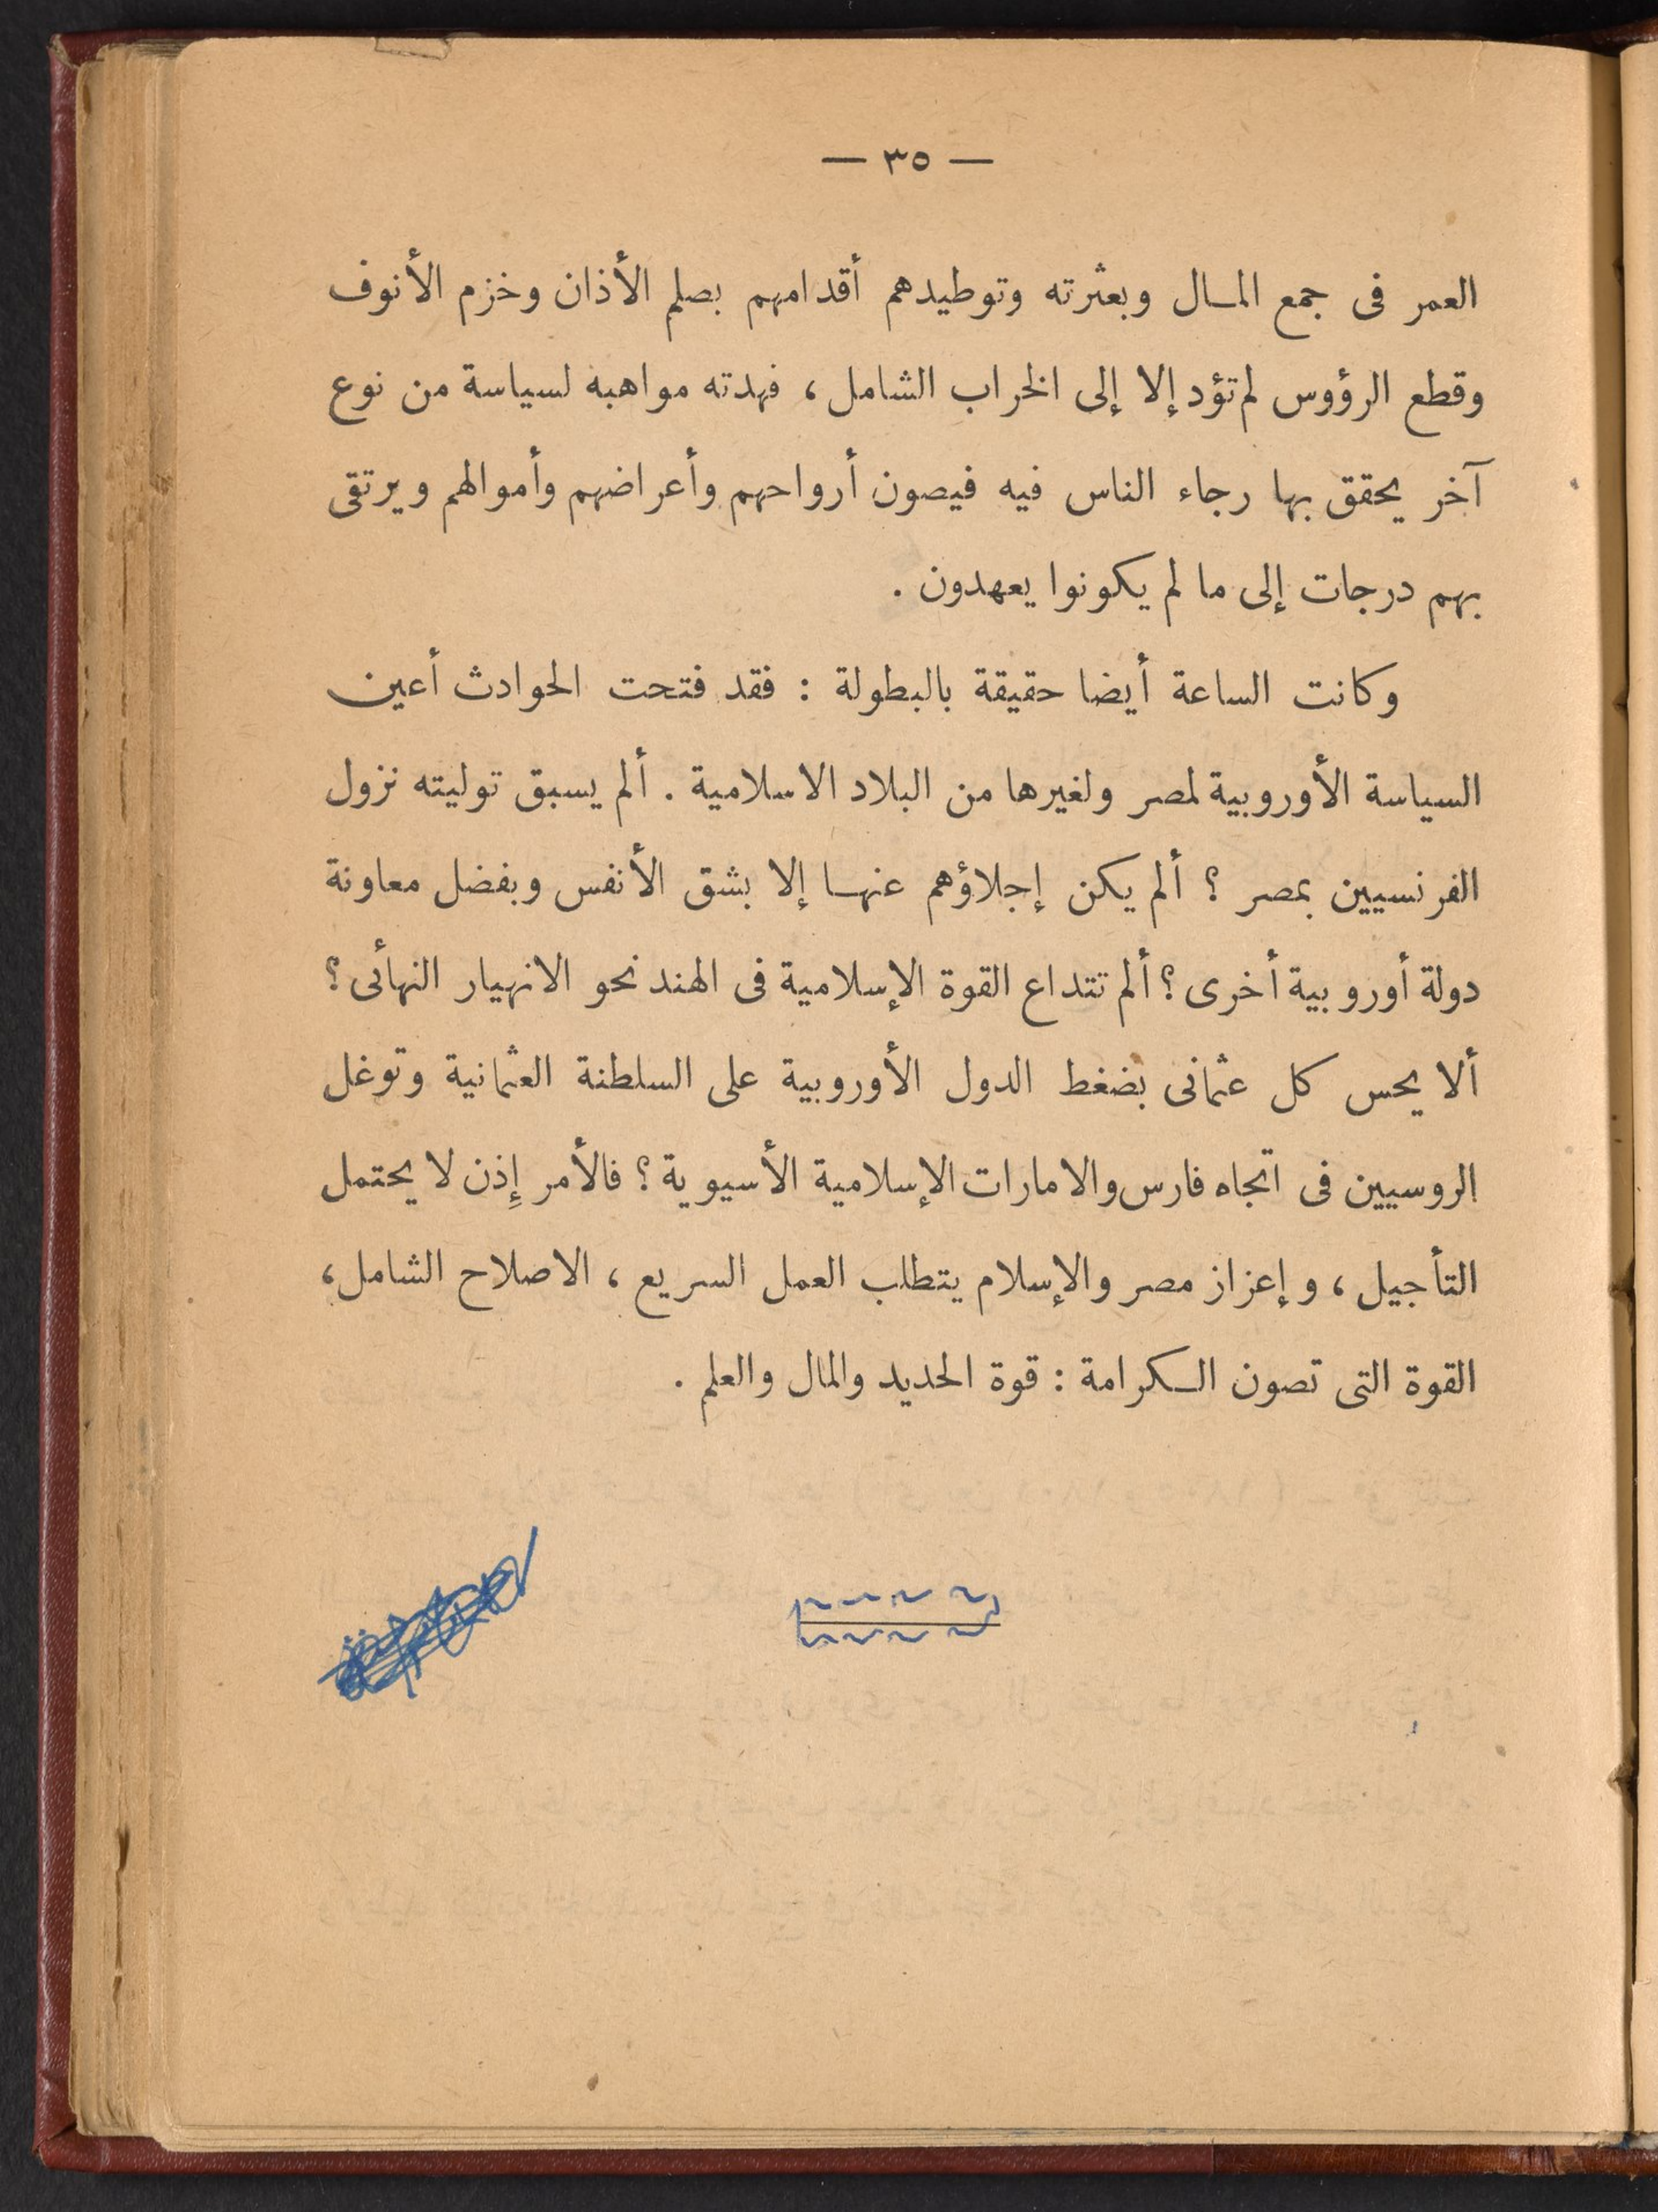 — ٣٥ —
العمر فى جمع المال وبعثرته وتوطيدهم أقدامهم بصلم الأذان وخزم الأنوف
وقطع الرؤوس لم تؤد إلا إلى الخراب الشامل ، فهدته مواهبه لسياسة من نوع
آخر يحقق بها رجاء الناس فيه فيصون أرواحهم وأعراضهم وأموالهم ويرتقى
بهم درجات إلى ما لم يكونوا يعهدون .
وكانت الساعة أيضا حقيقة بالبطولة : فقد فتحت الحوادث أعين
السياسة الأوروبية لمصر ولغيرها من البلاد الاسلامية . ألم يسبق توليته نزول
الفرنسيين بمصر ؟ ألم يكن إجلاؤهم عنها إلا بشق الأنفس وبفضل معاونة
دولة أوروبية أخرى ؟ ألم تتداع القوة الإسلامية فى الهند نحو الانهيار النهائى ؟
ألا يحس كل عثمانى بضغط الدول الأوروبية على السلطنة العثمانية وتوغل
الروسيين فى اتجاه فارس والامارات الإسلامية الأسيوية ؟ فالأمر إِذن لا يحتمل
التأجيل ، وإعزاز مصر والإسلام يتطلب العمل السريع ، الاصلاح الشامل ،
القوة التى تصون الكرامة : قوة الحديد والمال والعلم .